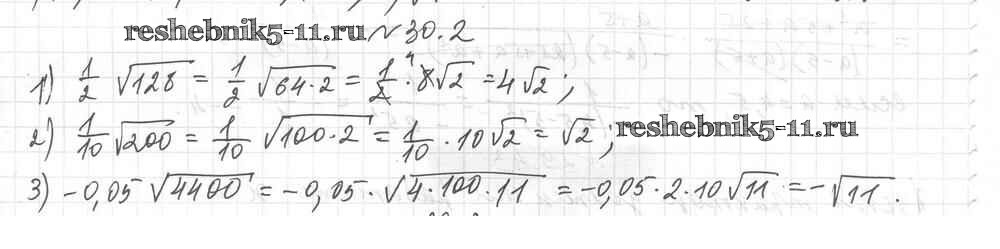 reshebnik5-11.ru №30.2
1) 1/2 √128 = 1/2 √64·2 = 1/2 · 8√2 4 = 4√2;
2) 1/10 √200 = 1/10 √100·2 = 1/10 · 10√2 = √2; reshebnik5-11.ru
3) -0,05 √4400 = -0,05 · √4·100·11 = -0,05·2·10√11 = -√11.